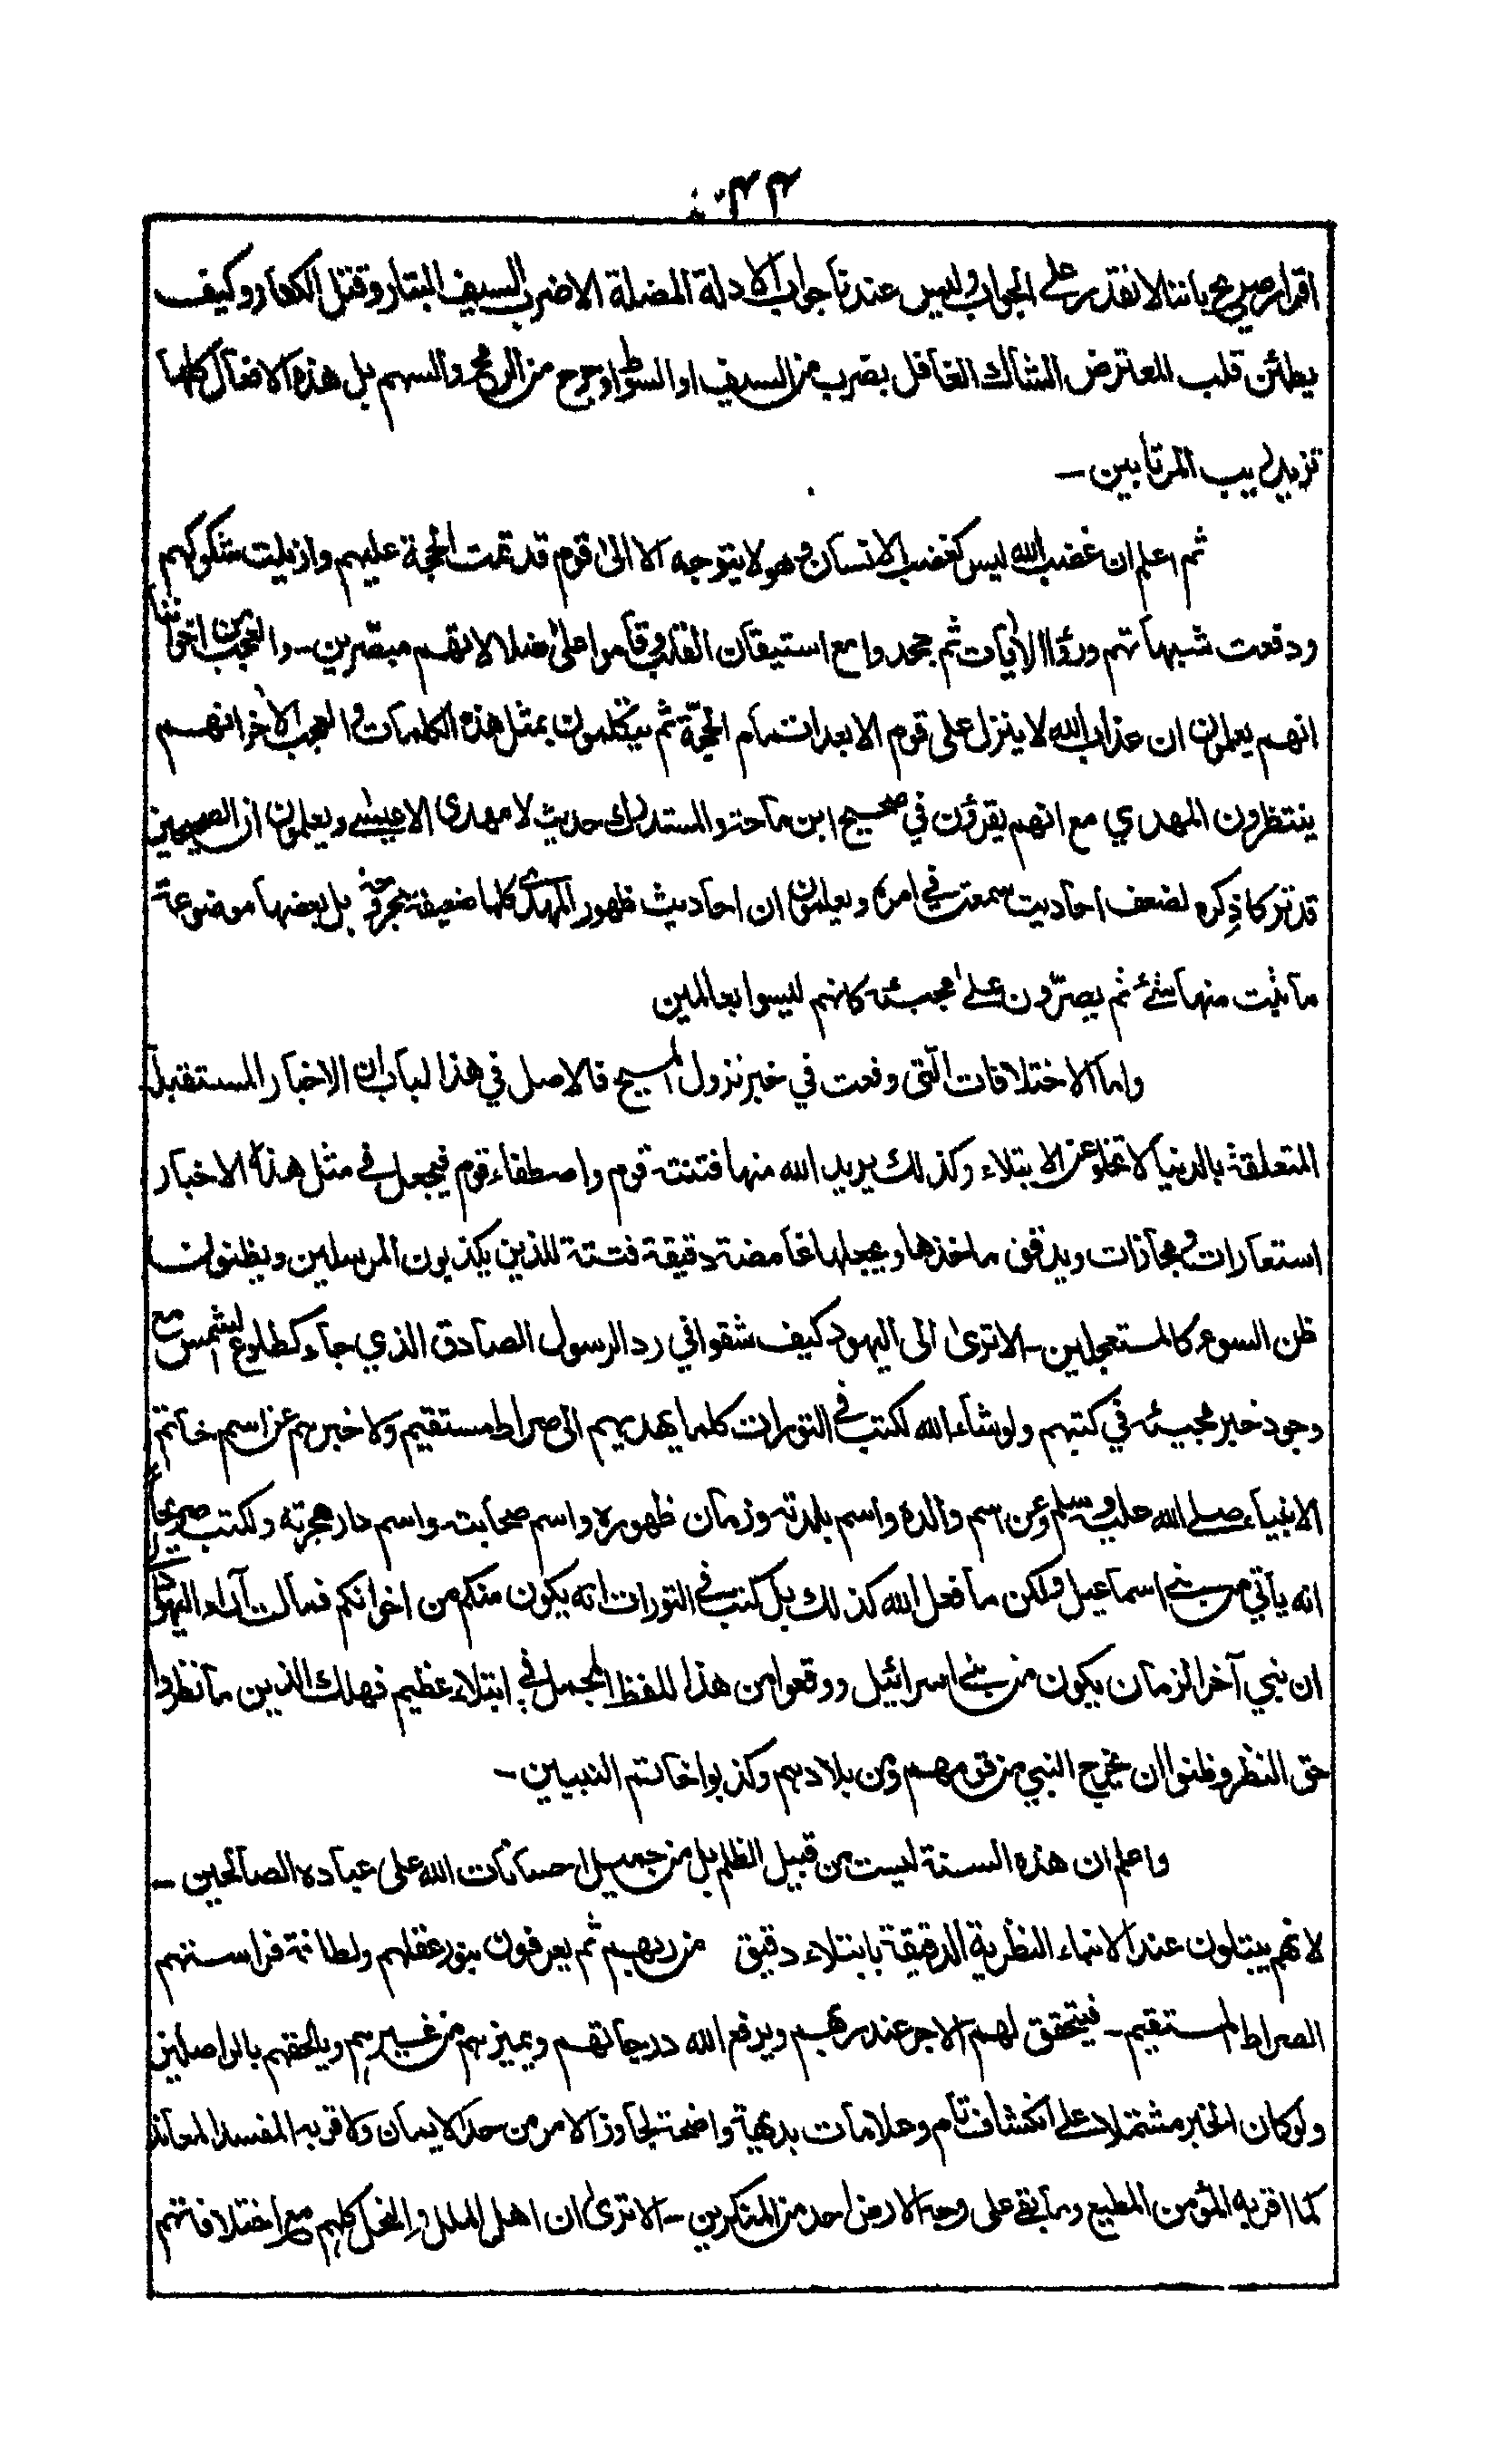 اقرار صريح باننا لا نقدر على الجواب وليس عندنا جواب الادلة المضلة الا ضرب السيف البتار وقتل الكفار وكيف
يطمئن قلب المعترض الشاك الغافل بضرب من السيف او السوط او جرح من الرمح والسهم بل هذه الافعال كلها
تزيد ريب المرتابين ــ
ثم اعلم ان غضب الله ليس كغضب الانسان وهو لا يتوجه الا الى قوم قد تمت الحجة عليهم وازيلت شكوكهم
ودفعت شبهاتهم ورؤا الآيات ثم جحدوا مع استيقان القلب وقاموا على ضلالاتهم مبصّرين ــ والعجب من اخواننا
انهم يعلمون ان عذاب الله لا ينزل على قوم الا بعد اتمام الحجّة ثم يتكلمون بمثل هذه الكلمات والعجب الآخر انهم
ينتظرون المهدي مع انهم يقرؤن في صحيح ابن ماجة والمستدرك حديث لا مهدى الا عيسى ويعلمون ان الصحيحين
قد تركا ذِكره لضعف احاديث سمعت في امره ويعلمون ان احاديث ظهور المهدى كلها ضعيفة مجروحة بل بعضها موضوعة
ما ثبت منها شئ ثم يصرّون على مجيئه كانهم ليسوا بعالمين
واما الاختلافات الّتى وقعت في خبر نزول المسيح فالاصل في هذا الباب ان الاخبار المستقبلة
المتعلقة بالدنيا لا تخلو عن الابتلاء وكذلك يريد الله منها فتنة قوم واصطفاء قوم فيجعل في مثل هذه الاخبار
استعارات ومجازات ويدقق ماخذها ويجعلها غامضة دقيقة فتنة للذين يكذبون المرسلين ويظنون
ظن السوء كالمستعجلين ــ الا ترى الى اليهود كيف شقوا في رد الرسول الصادق الذي جاء كطلوع الشمس مع
وجود خبر مجيئه في كتبهم ولو شاء الله لكتب في التورات كلما يهديهم الى صراط مستقيم ولاخبرهم عن اسم خاتم
الانبياء صلى الله عليه وسلم وعن اسم والده واسم بلدته وزمان ظهوره واسم صحابته واسم دار هجرته ولكتب صريحاً
انه يأتي من بني اسماعيل ولكن ما فعل الله كذلك بل كتب في التورات انه يكون منكم من اخوانكم فمالت آراء اليهود
ان نبي آخر الزمان يكون من بني اسرائيل ووقعوا من هذا اللفظ المجمل في ابتلاء عظيم فهلك الذين ما نظروا
حق النظر وظنوا ان يخرج النبي من قومهم ومن بلادهم وكذبوا خاتم النبيين ــ
واعلم ان هذه السنة ليست من قبيل الظلم بل من جميل احسانات الله على عباده الصالحين ــ
لانهم يبتلون عند الانباء النظرية الدقيقة بابتلاء دقيق من ربهم ثم يعرفون بنور عقلهم ولطافة فراستهم
الصراط المستقيم ــ فيتحقق لهم الاجر عند ربهم ويرفع الله درجاتهم ويميزهم من غيرهم ويلحقهم بالواصلين
ولو كان الخبر مشتملا على انكشاف تام وعلامات بديهية واضحة لجاوز الامر من حد الايمان ولاقر به المفسد المعاند
كما اقر به المؤمن المطيع وما بقي على وجه الارض احد من المنكرين ــ الا ترى ان اهل الملل والنحل كلهم مع اختلافاتهم